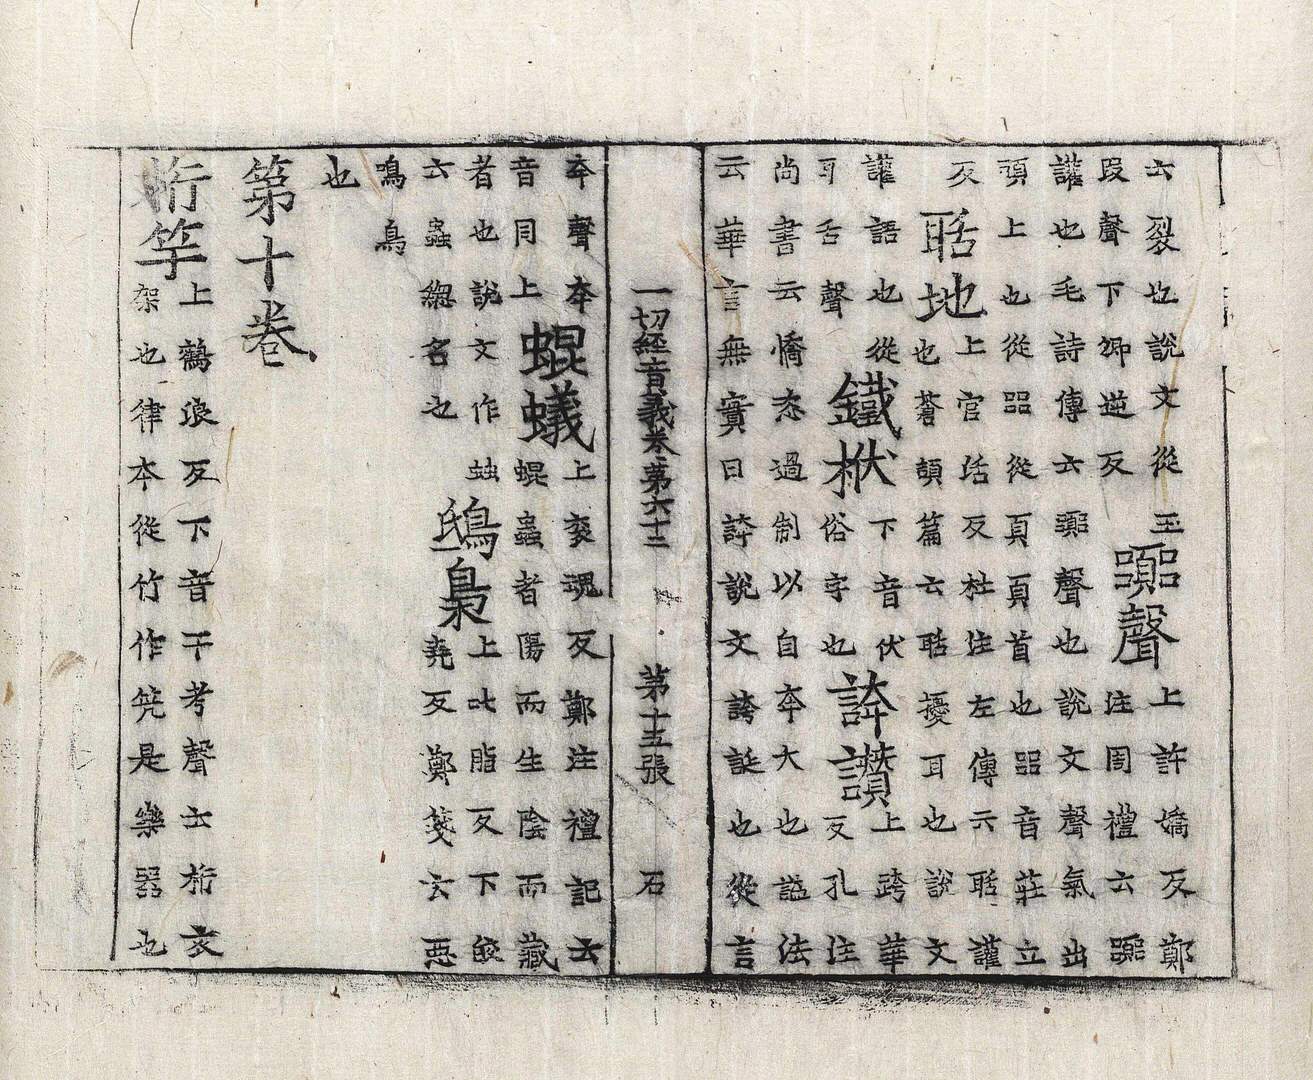 云裂也說文從玉
叚聲下卿逆反
嚻聲
上許嬌反鄭
注周禮云嚻
讙也毛詩傳云嚻聲也說文聲氣出
頭上也從㗊從頁頁首也㗊音莊立
反
聒地
上官活反杜注左傳云聒讙
也蒼頡篇云聒擾耳也說文
讙語也從
耳舌聲
鐵栿
下音伏
俗字也
誇讃
上跨華
反孔注
尚書云憍恣過制以自夲大也謚法
云華言無實曰誇說文誇誕也從言
一切經音義卷第六十二 第十五張 石
夲聲夲
音同上
蜫蟻
上亥魂反鄭注禮記云
蜫蟲者陽而生陰而藏
者也說文作䖵
云蟲緫名也
鵄梟
上叱脂反下皎
堯反鄭箋云惡
鳴鳥
也
第十卷
桁竿
上鶴浪反下音干考聲云桁衣
架也律本從竹作笐是樂器也